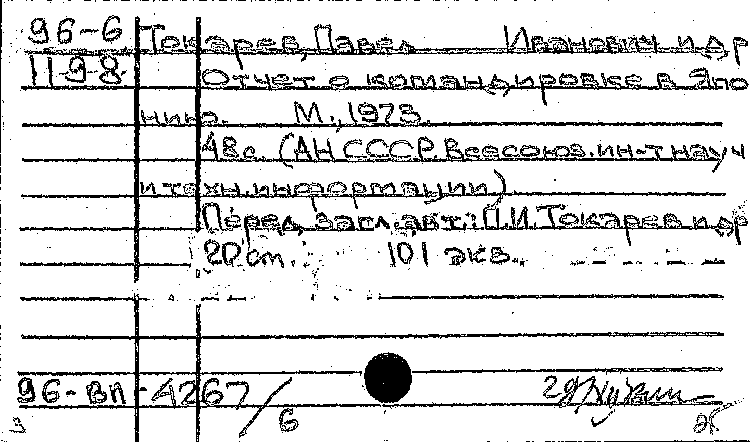 96-6 Токарев, Павел Иванович и др
1198 Отчет о командировке в Япо
нию. М., 1973.
48с. (АН СССР. Всесоюз. ин-т науч
и техн. информации)
Перед загл. авт.: П.И. Токарев и др
20 см. 101 экз.
96-ВЛ-4267/6